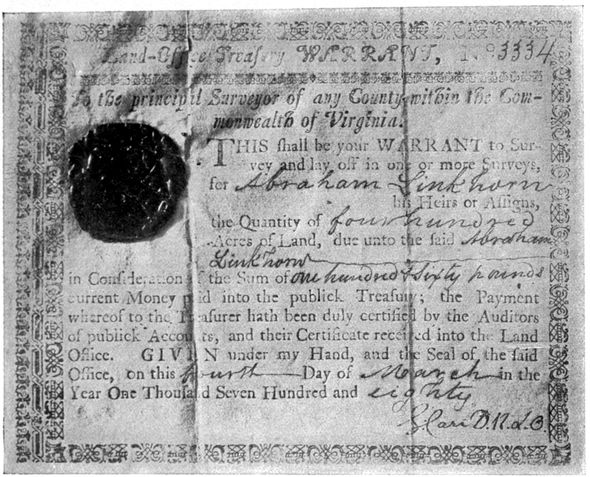 Land-Office Treasury WARRANT, No 3334
To the principal Surveyor of any County within the Com-
monwealth of Virginia.
THIS shall be your WARRANT to Sur-
vey and lay off in one or more Surveys,
for Abraham Linkhorn
his Heirs or Assigns,
the Quantity of four hundred
Acres of Land, due unto the said Abraham
Linkhorn
in Consideration of the Sum of one hundred & sixty pounds
current Money paid into the publick Treasury; the Payment
whereof to the Treasurer hath been duly certified by the Auditors
of publick Accounts, and their Certificate received into the Land
Office. GIVEN under my Hand, and the Seal of the said
Office, on this fourth Day of March in the
Year One Thousand Seven Hundred and eighty